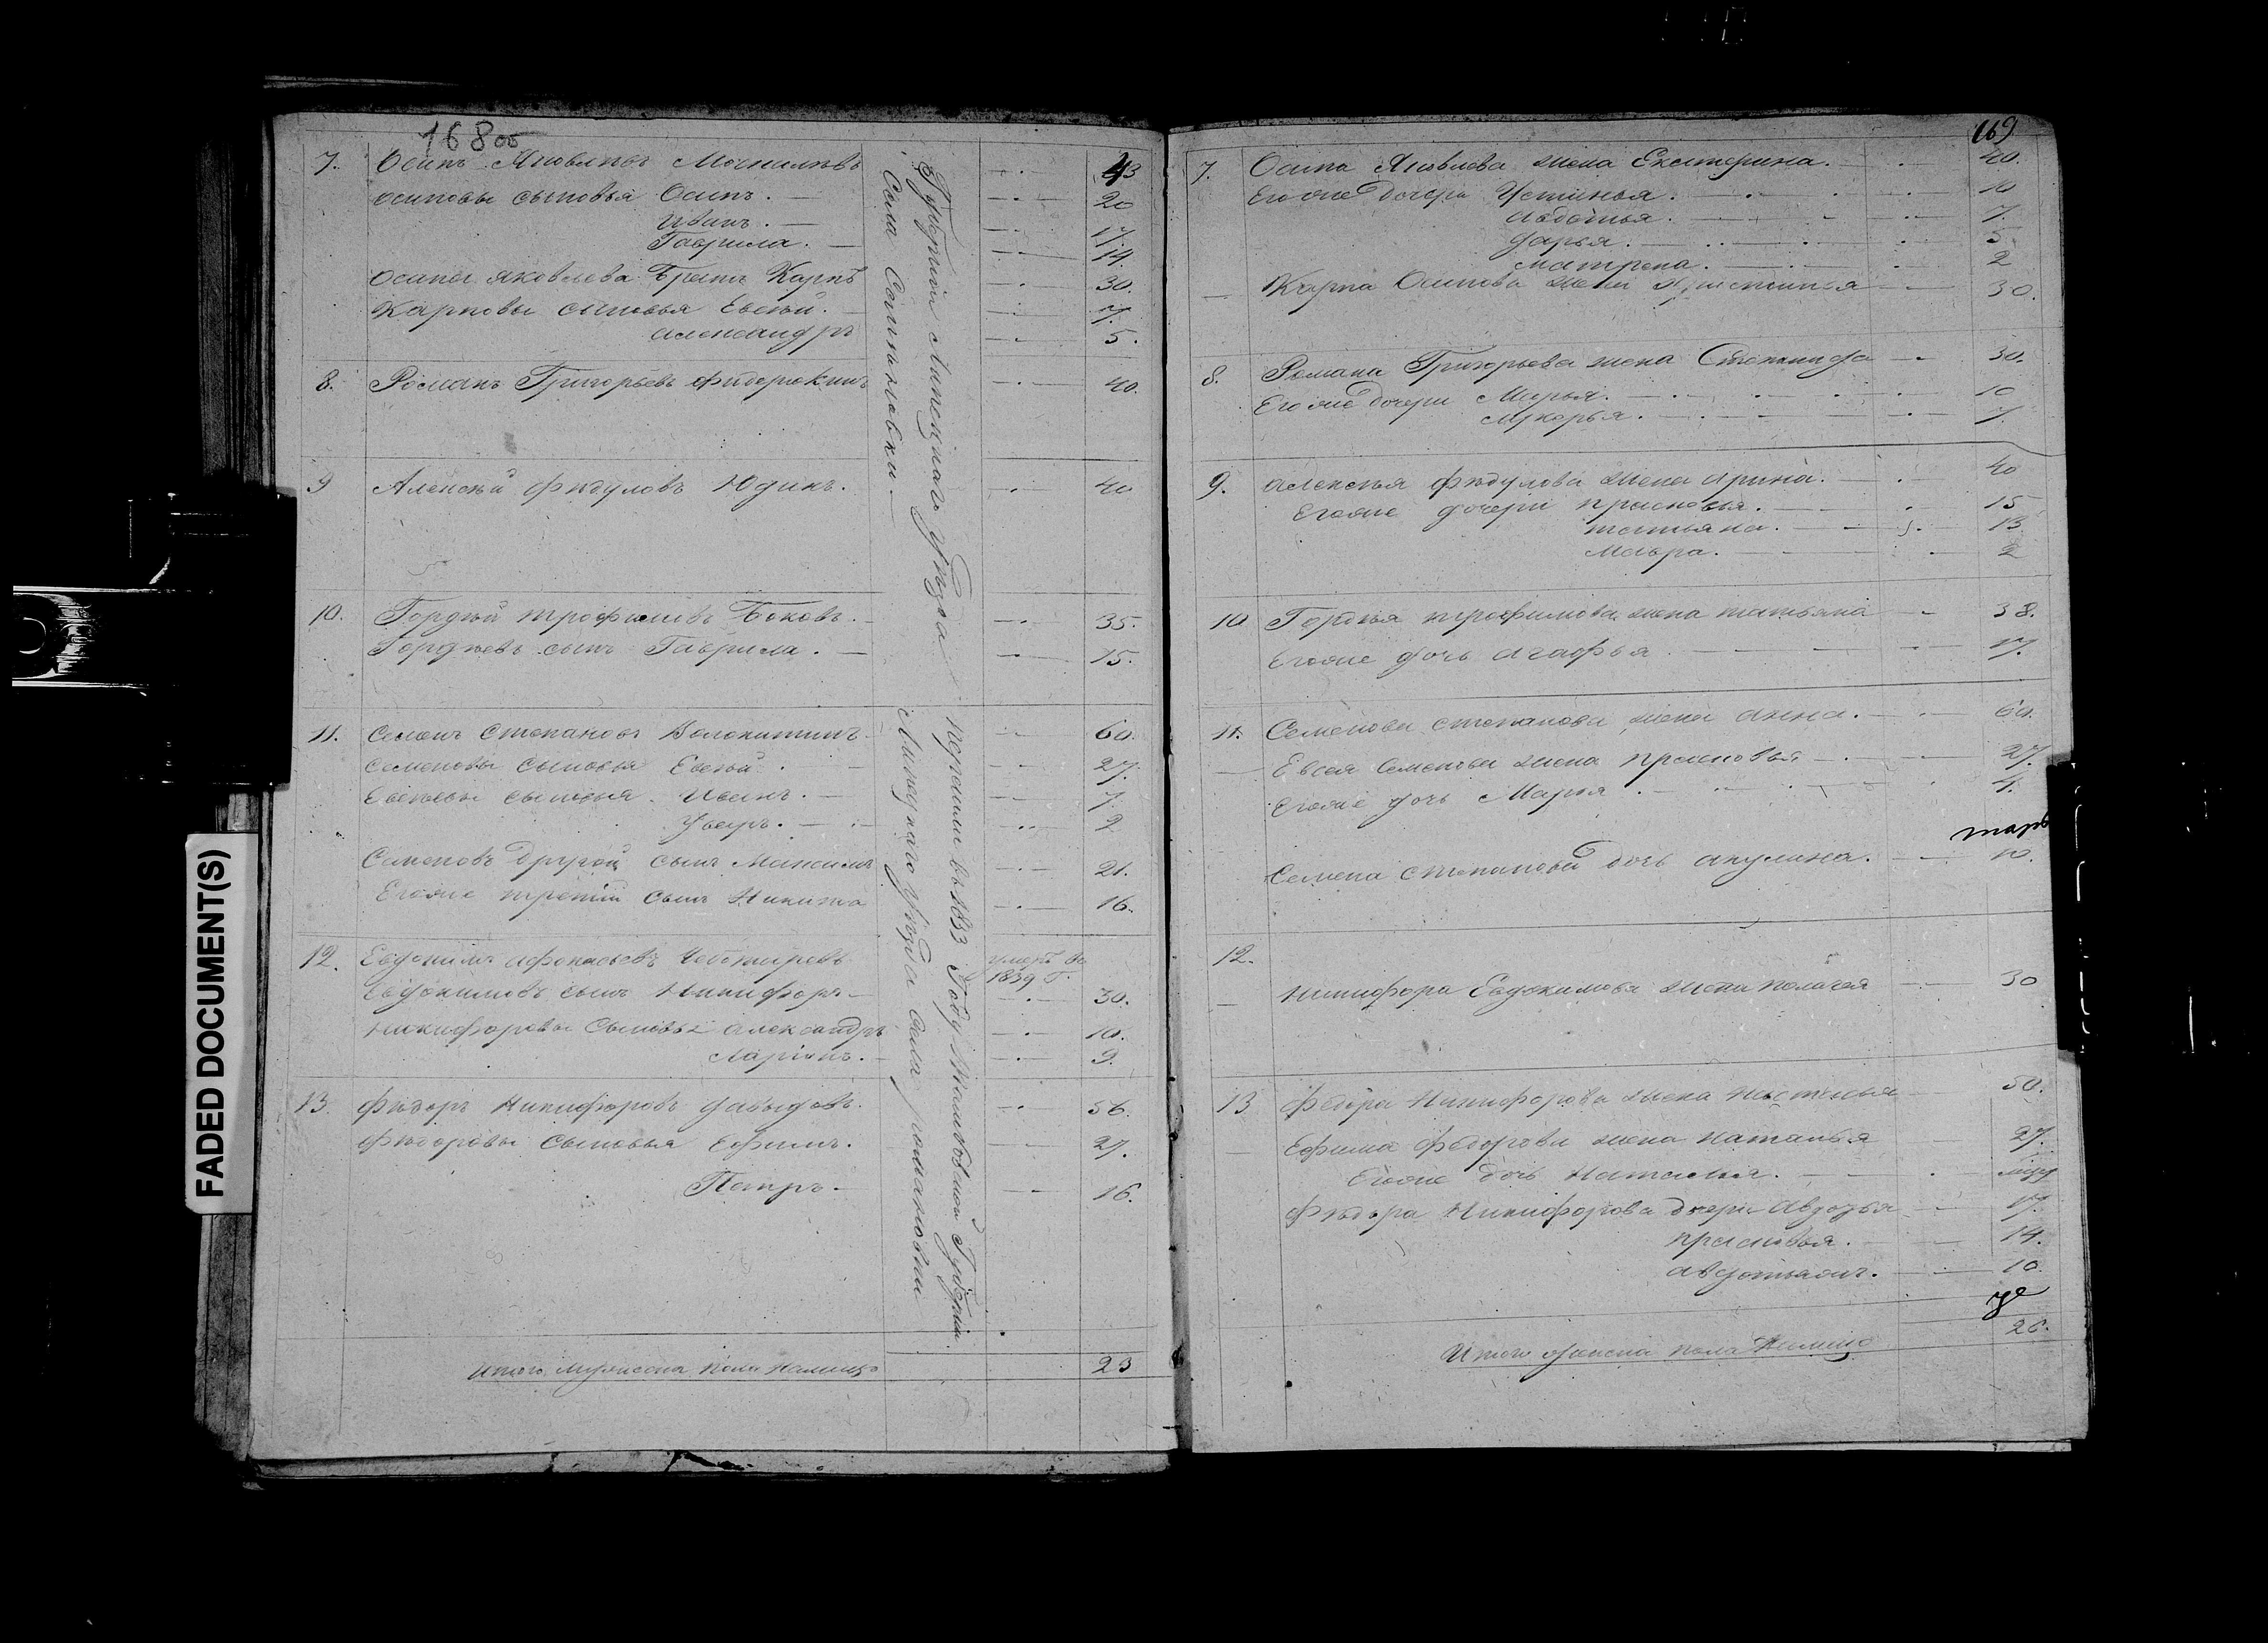 168 об
7. Осипъ Яковлевъ Москалевъ 43
осиповы сыновья Осипъ. 20
Иванъ. 17.
Гаврила. 14.
Осипа яковлева Братъ Карпъ 30.
Карповы сыновья Евсей. 7.
александръ 5.
8. Романъ Григорьевъ 40.
9 Алексей Фѣдуловъ Юдинъ. 40
10. Гордѣй трофимовъ Боковъ. 35.
Гордѣевъ сынъ Гаврила. 15.
11. Семенъ Степановъ Волокитинъ 60.
Семеновы сыновья Евсей 27.
Евсеевы сыновья Иванъ. 7.
Уваръ. 2
Семеновъ Другой сынъ Максимъ 21.
Егоже третий сынъ Никита 16.
12. Евдокимъ афонасьевъ умеръ въ 1839 Г.
Евдокимовъ сынъ Никифоръ 30.
Никифоровы Сыновья александръ 10.
Ларіонъ. 9.
13. Фѣдоръ Никифоровъ давыдовъ. 56.
Фѣдоровы Сыновья Ефимъ. 27.
Петръ. 16.
Итого мужеска пола налицо 23
перешли въ 1833 Году Тамбовской Губерніи
Липецкаго уѣзда села романовки
Губерніи Липецкаго уѣзда
Села
FADED DOCUMENT(S)
169
7. Осипа Яковлева жена Екатерина. 40.
Егоже дочери Устинья. 10
авдотья. 7.
дарья. 5.
матрена. 2
Карпа Осипова жена 30.
8. Романа Григорьева жена Степанида 30.
Егоже дочери Марья. 10
Лукерья. 7.
9. алексея Фѣдулова жена арина. 40
Егоже дочери прасковья. 15
татьяна. 13
Мавра. 2
10 Гордѣя трофимова жена татьяна 38.
Егоже дочь агафья 17.
11. Семенова степанова жена анна. 60.
Евсея Семенова жена прасковья 27.
Егоже дочь Марья 4.
Семена степанова дочь акулина. 10.
12.
Никифора Евдокимова жена пелагея 30
13 Федора Никифорова жена настасья 50.
Ефима Федорова жена наталья 27.
Егоже дочь Наталья.
Фѣдора Никифорова дочери авдотья 17.
прасковья. 14.
10
Итого женска пола налицо 26.